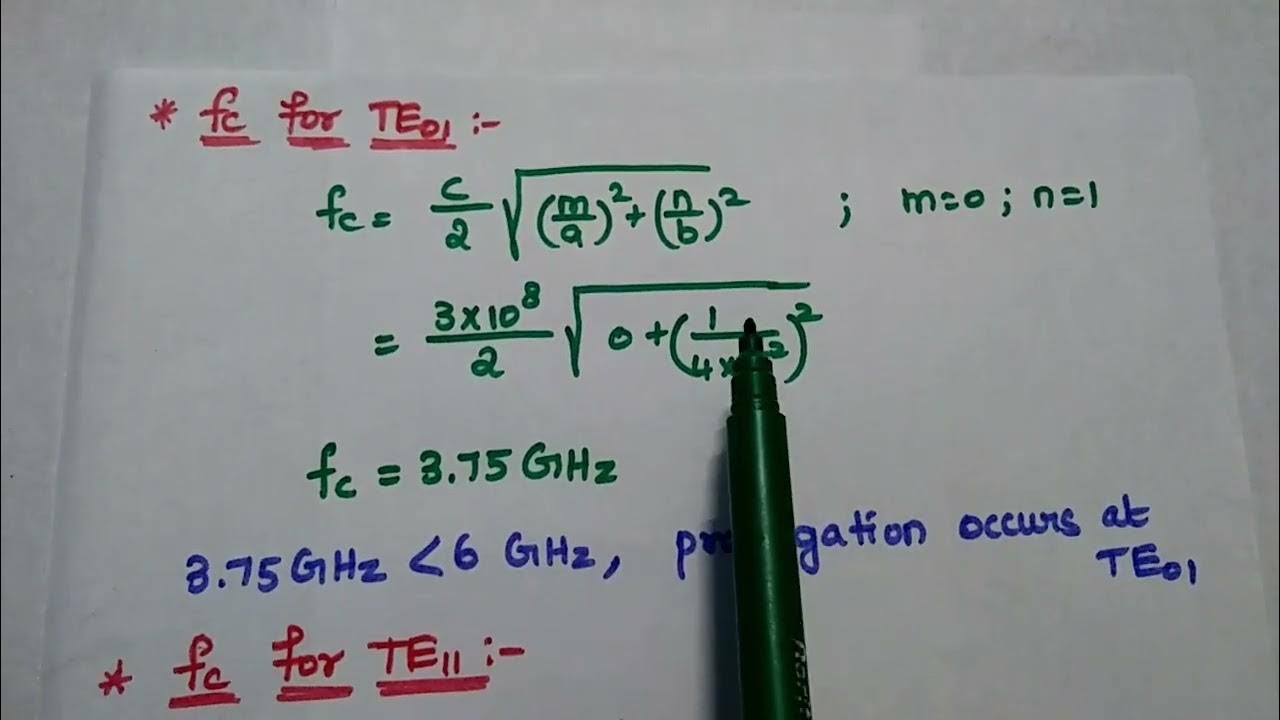 * fc for TE01 :-
fc = c/2 √((m/a)² + (n/b)²) ; m=0 ; n=1
= 3×10⁸/2 √(0 + (1/4×
fc = 3.75 GHz
3.75 GHz < 6 GHz, occurs at
TE01
* fc for TE11 :-